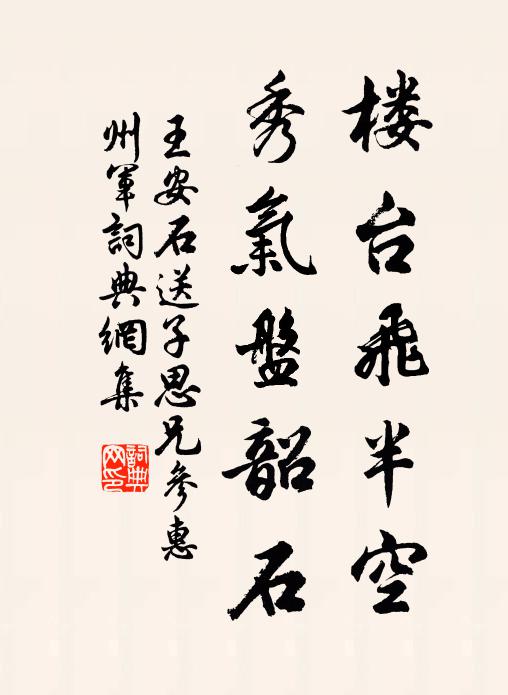 楼台飛半空
秀氣盤韶石
王安石送子思兄參惠
州軍詞典網集
詞典
网印